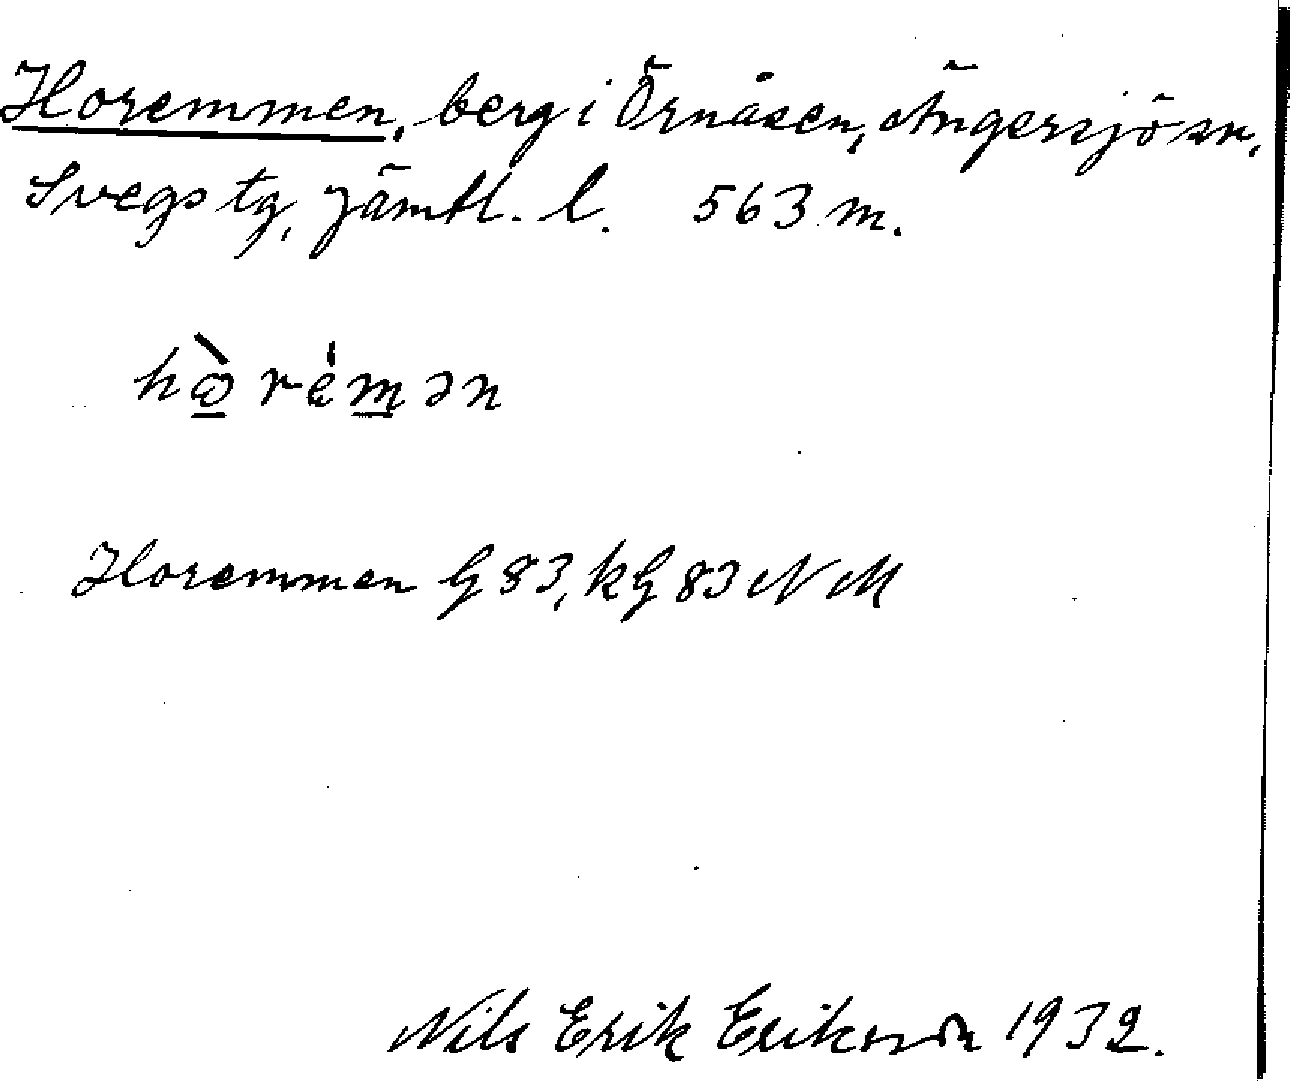 Horemmen, berg i Örnåsen, Ängersjö sn,
Svegs tg, Jämtl. l. 563 m.
hòrémən
Horemmen G 83, kG 83 NM
Nils Erik Erikson 1932.